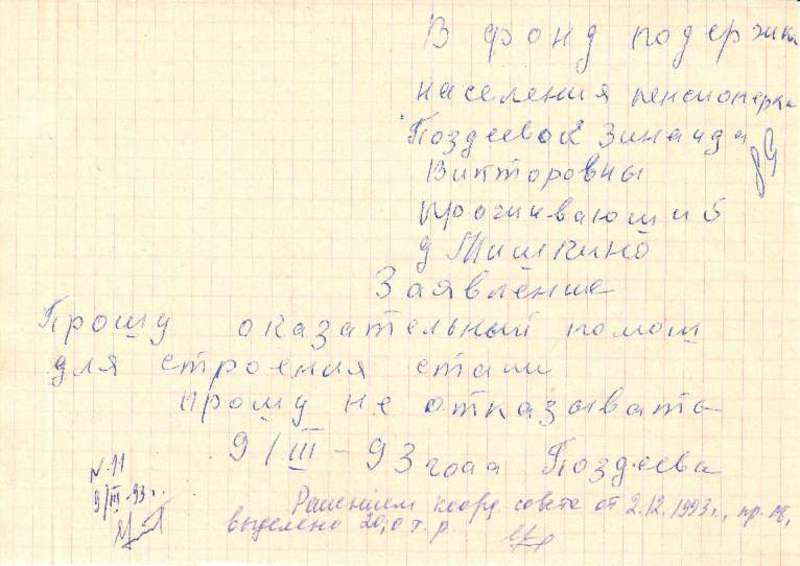 В фонд подержки
населения пенсионерки
Поздеевой Зинаида
Викторовны
д Мишкино
Заявление
Прошу оказательный помош
для строения стаи
прошу не отказывать
9/III-93 года Поздеева
N 11
9/III-93 г.
Решением коорд. совета от 2.12.1993 г., пр.
выделено 20,0 т.р.